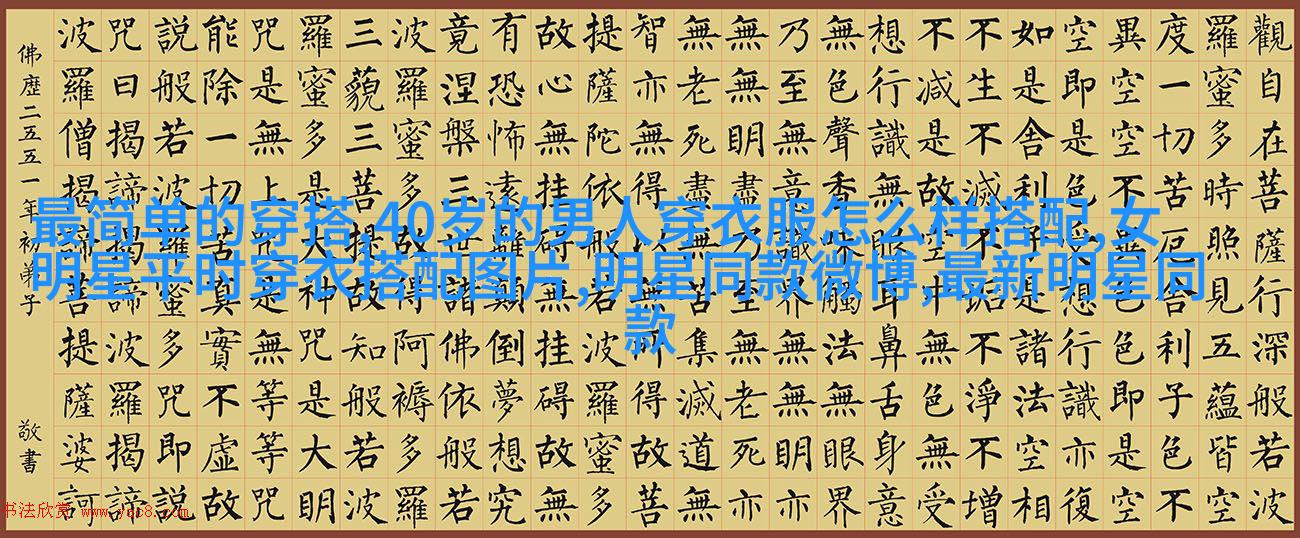 觀自在菩薩行深般若波
羅蜜多時照見五蘊皆空
度一切苦厄舍利子色不
異空空不異色色即是空
空即是色受想行識亦復
如是舍利子是諸法空相
不生不滅不垢不淨不增
不減是故空中無色無受
想行識無眼耳鼻舌身意
無色聲香味觸法無眼界
乃至無意識界無無明亦
無無明盡乃至無老死亦
無老死盡無苦集滅道無
智亦無得以無所得故菩
提薩陀依般若波羅蜜多
故心無挂碍無挂碍故無
有恐怖遠離顛倒夢想究
竟涅槃三世諸佛依般若
波羅蜜多故得阿褥多羅
三藐三菩提故知般若波
羅蜜多是大神咒是大明
咒是無上咒是無等等咒
能除一切苦真實不虛故
說般若波羅蜜多咒即說
咒曰揭諦揭諦波羅揭諦
波羅僧揭諦菩提薩婆訶
佛歷二五五一年初弟子 敬書
最简单的穿搭,40岁的男人穿衣服怎么样搭配,女
明星平时穿衣搭配图片,明星同款微博,最新明星同
款
书法欣赏 www.yac8.com